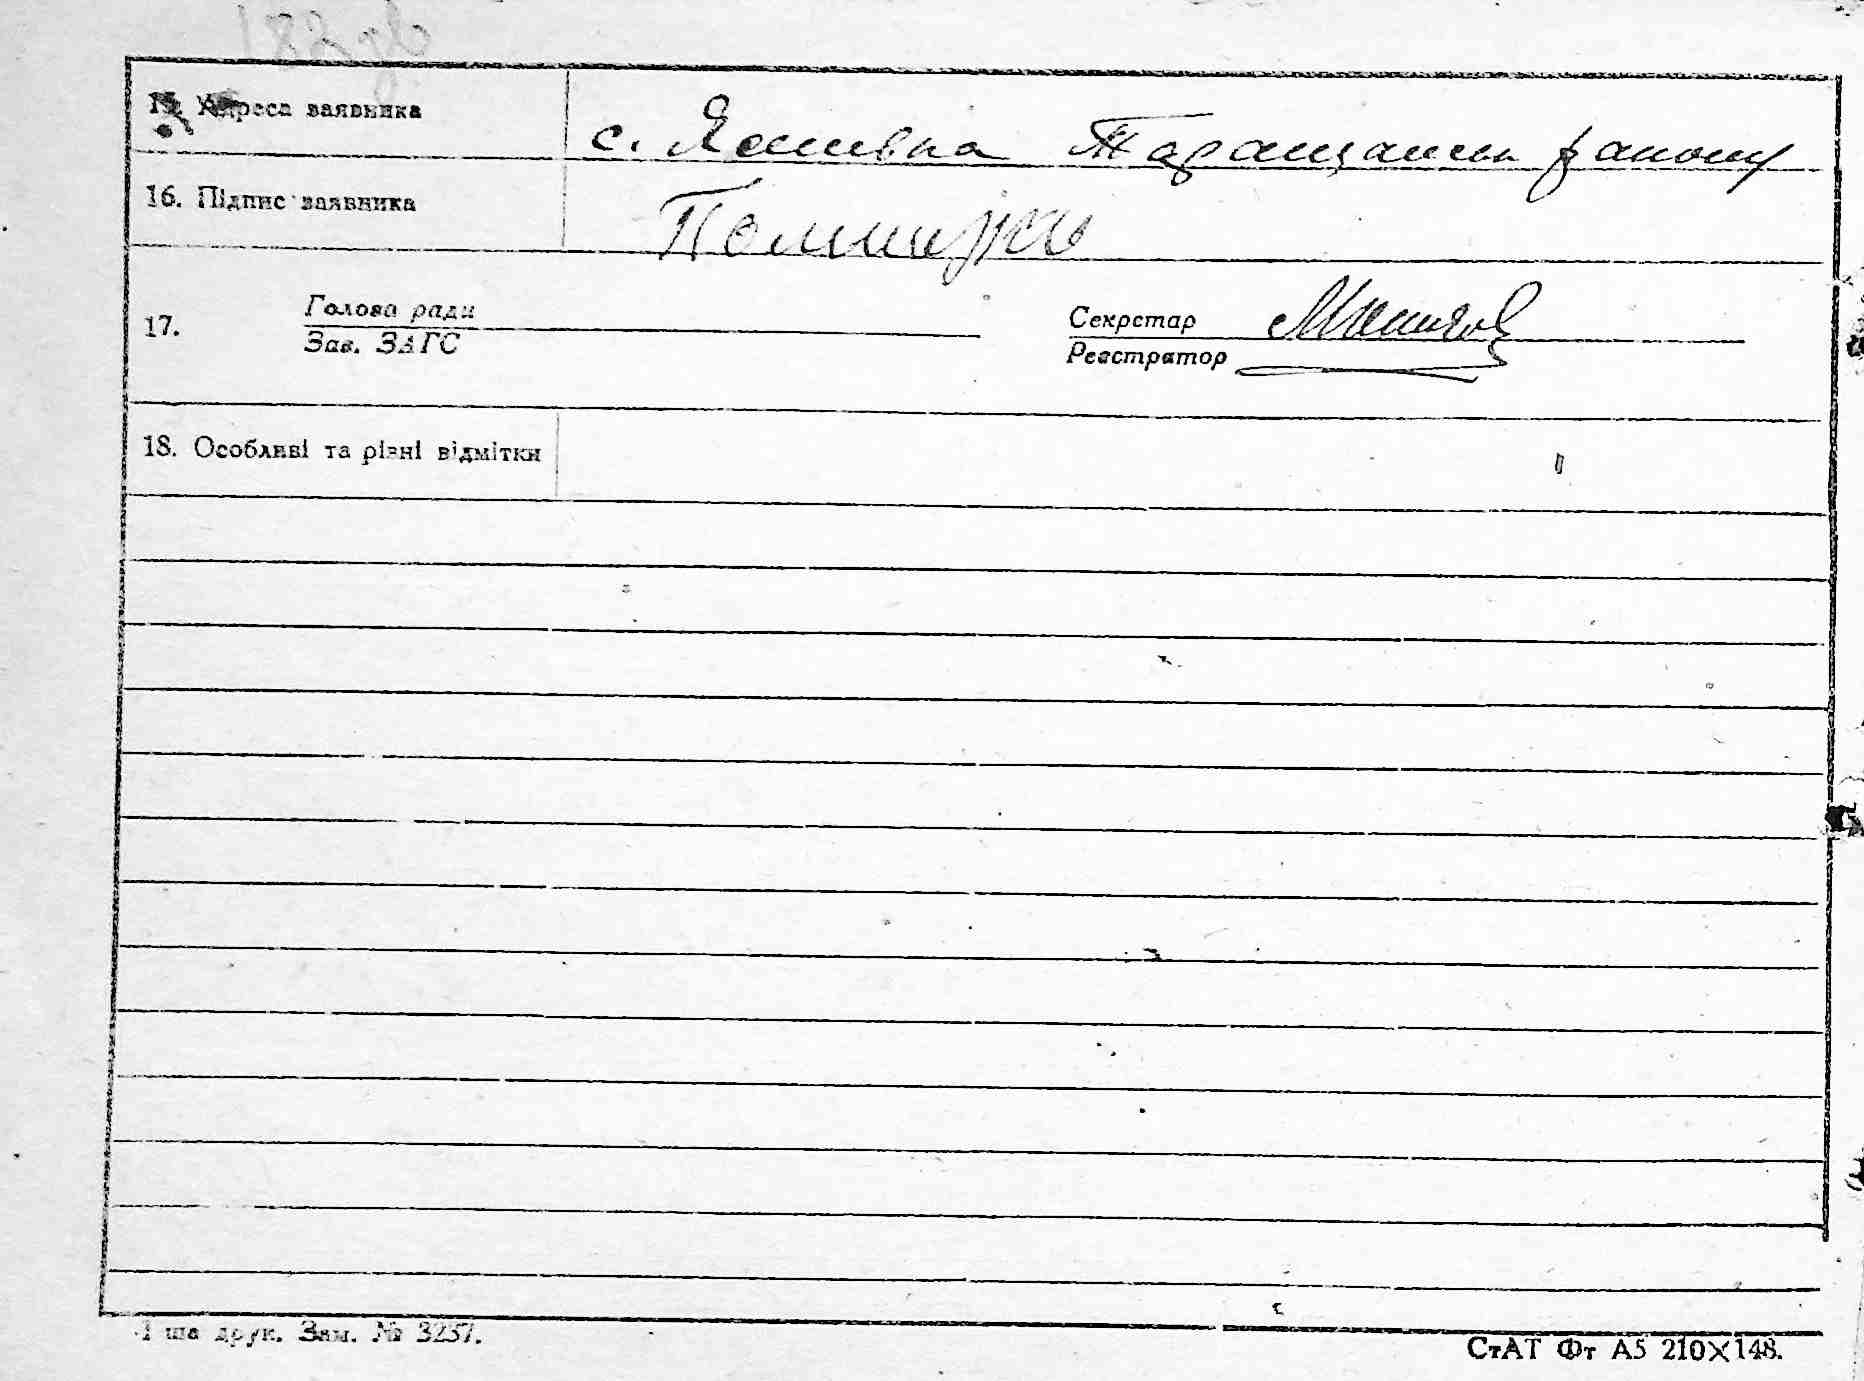 15. Адреса заявника с. Яшивка Таращанськ району
16. Підпис заявника
17. Голова ради Секретар
Зав. ЗАГС Реєстратор
18. Особливі та різні відмітки
1 ша друк. Зам. № 3237.
СтАТ Фт А5 210×148.